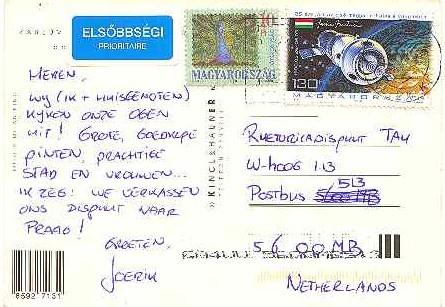 ELSŐBBSÉGI
PRIORITAIRE
MAGYARORSZÁG
130
MAGYARORSZÁG
HEREN,
WIJ (IK + HUISGENOTEN)
KIJKEN ONZE OGEN
UIT! GROTE, GOEDKOPE
PINTEN, PRACHTIGE
STAD EN VROUWEN...
IK ZEG: WE VERKASSEN
ONS DISPUUT NAAR
PRAAG!
GROETEN,
JOERIK
KINCL & HAUNER
RHETORICADISPUUT TAU
W-HOOG 1.13
POSTBUS 513
5600 MB
NETHERLANDS
8592 7131